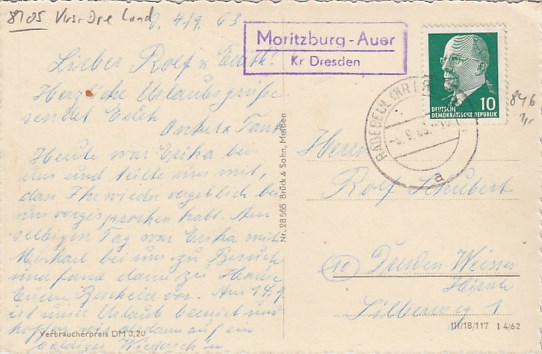 8105 Dre Land
, 4/9. 63
Moritzburg-Auer
Kr Dresden
Lieber Rolf u. Edith!
Herzliche Urlaubsgrüße
sendet Euch
Onkel u. Tante
Heute war Erika bei
uns und teilte uns mit,
daß Ihr wieder vergeblich bei
uns vorgesprochen habt. Am
selbigen Tag war Erika mit
Michael bei uns zu Besuch
und fand dann zu Hause
Euren vor. Am 14.9.
ist unser Urlaub beendet und
hoffen dann auf ein
baldiges Wiedersehen
Verbraucherpreis DM 0,20
Nr. 28565 Brück & Sohn, Meißen
RADEBEUL
a
10
DEUTSCHE
DEMOKRATISCHE REPUBLIK
846
Herrn
Rolf Schubert
10 Dresden Weisser
Hirsch
Silberweg 1
III/18/117 I 4/62